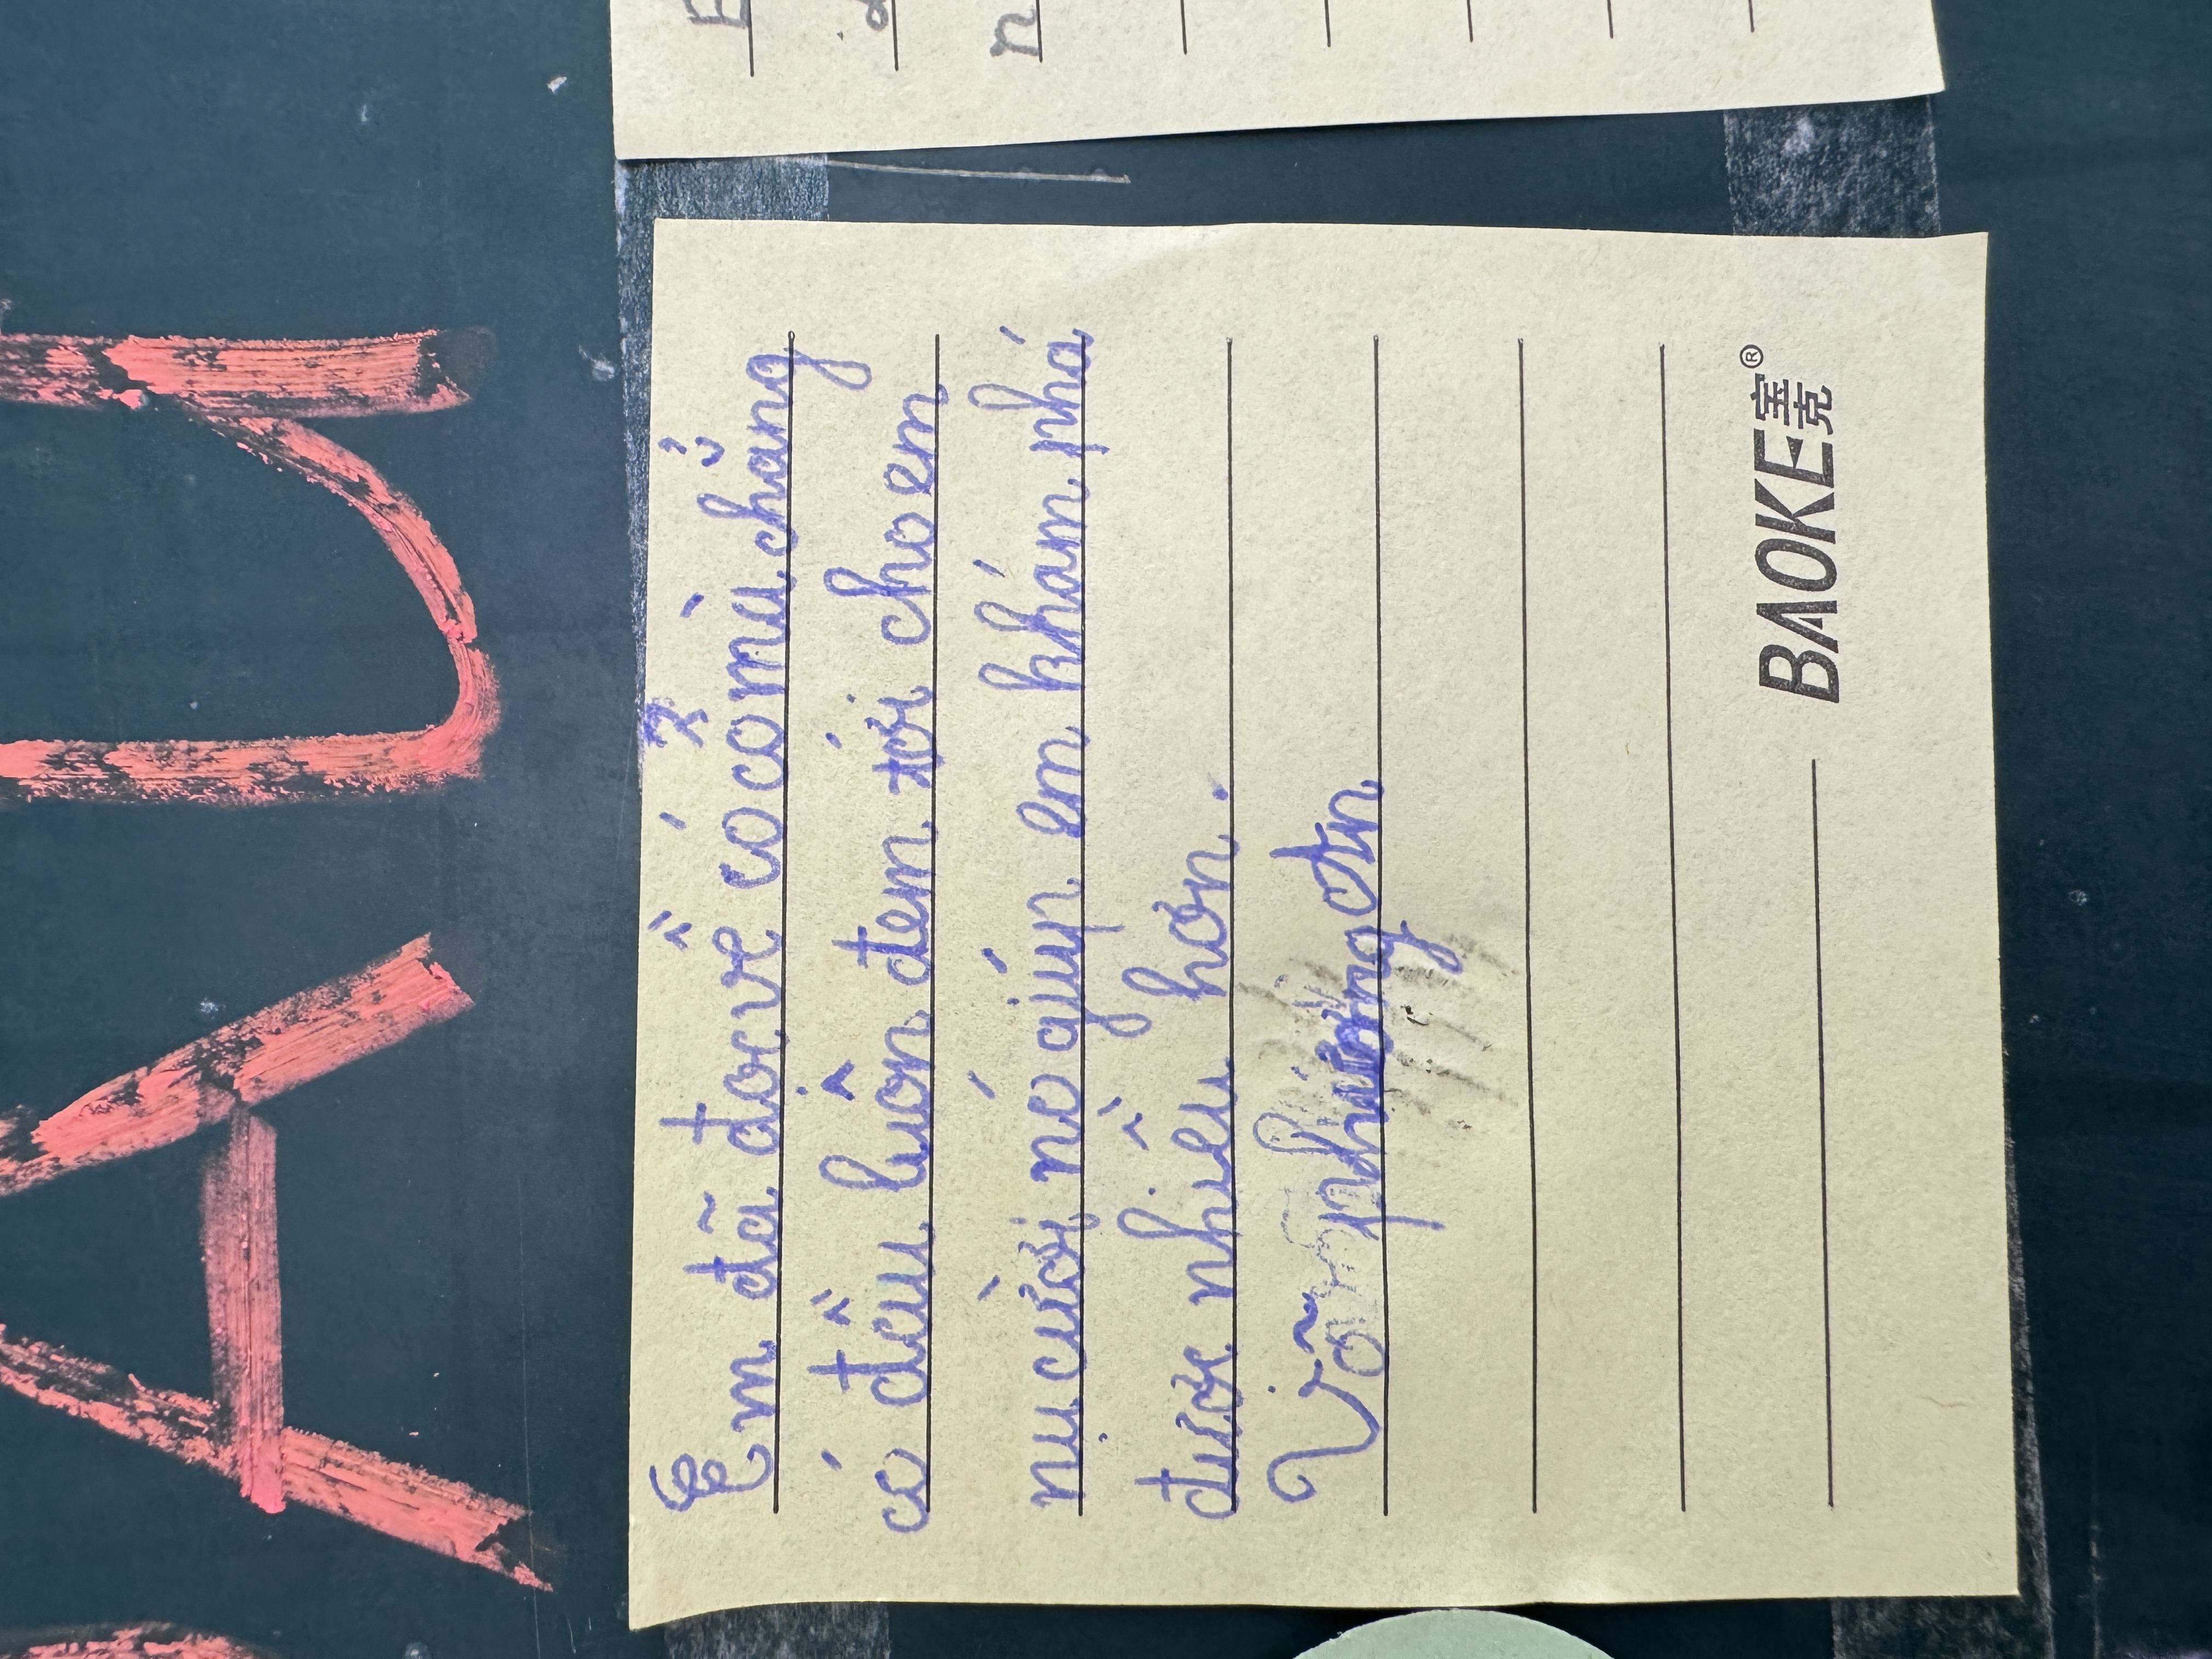 Em đã đọc về cô cô mà chẳng
có điều luôn đem tới cho em
nụ cười, nó giúp em khám phá
được nhiều hơn.
Võ phương Ân
BAOKE宝克®
AU